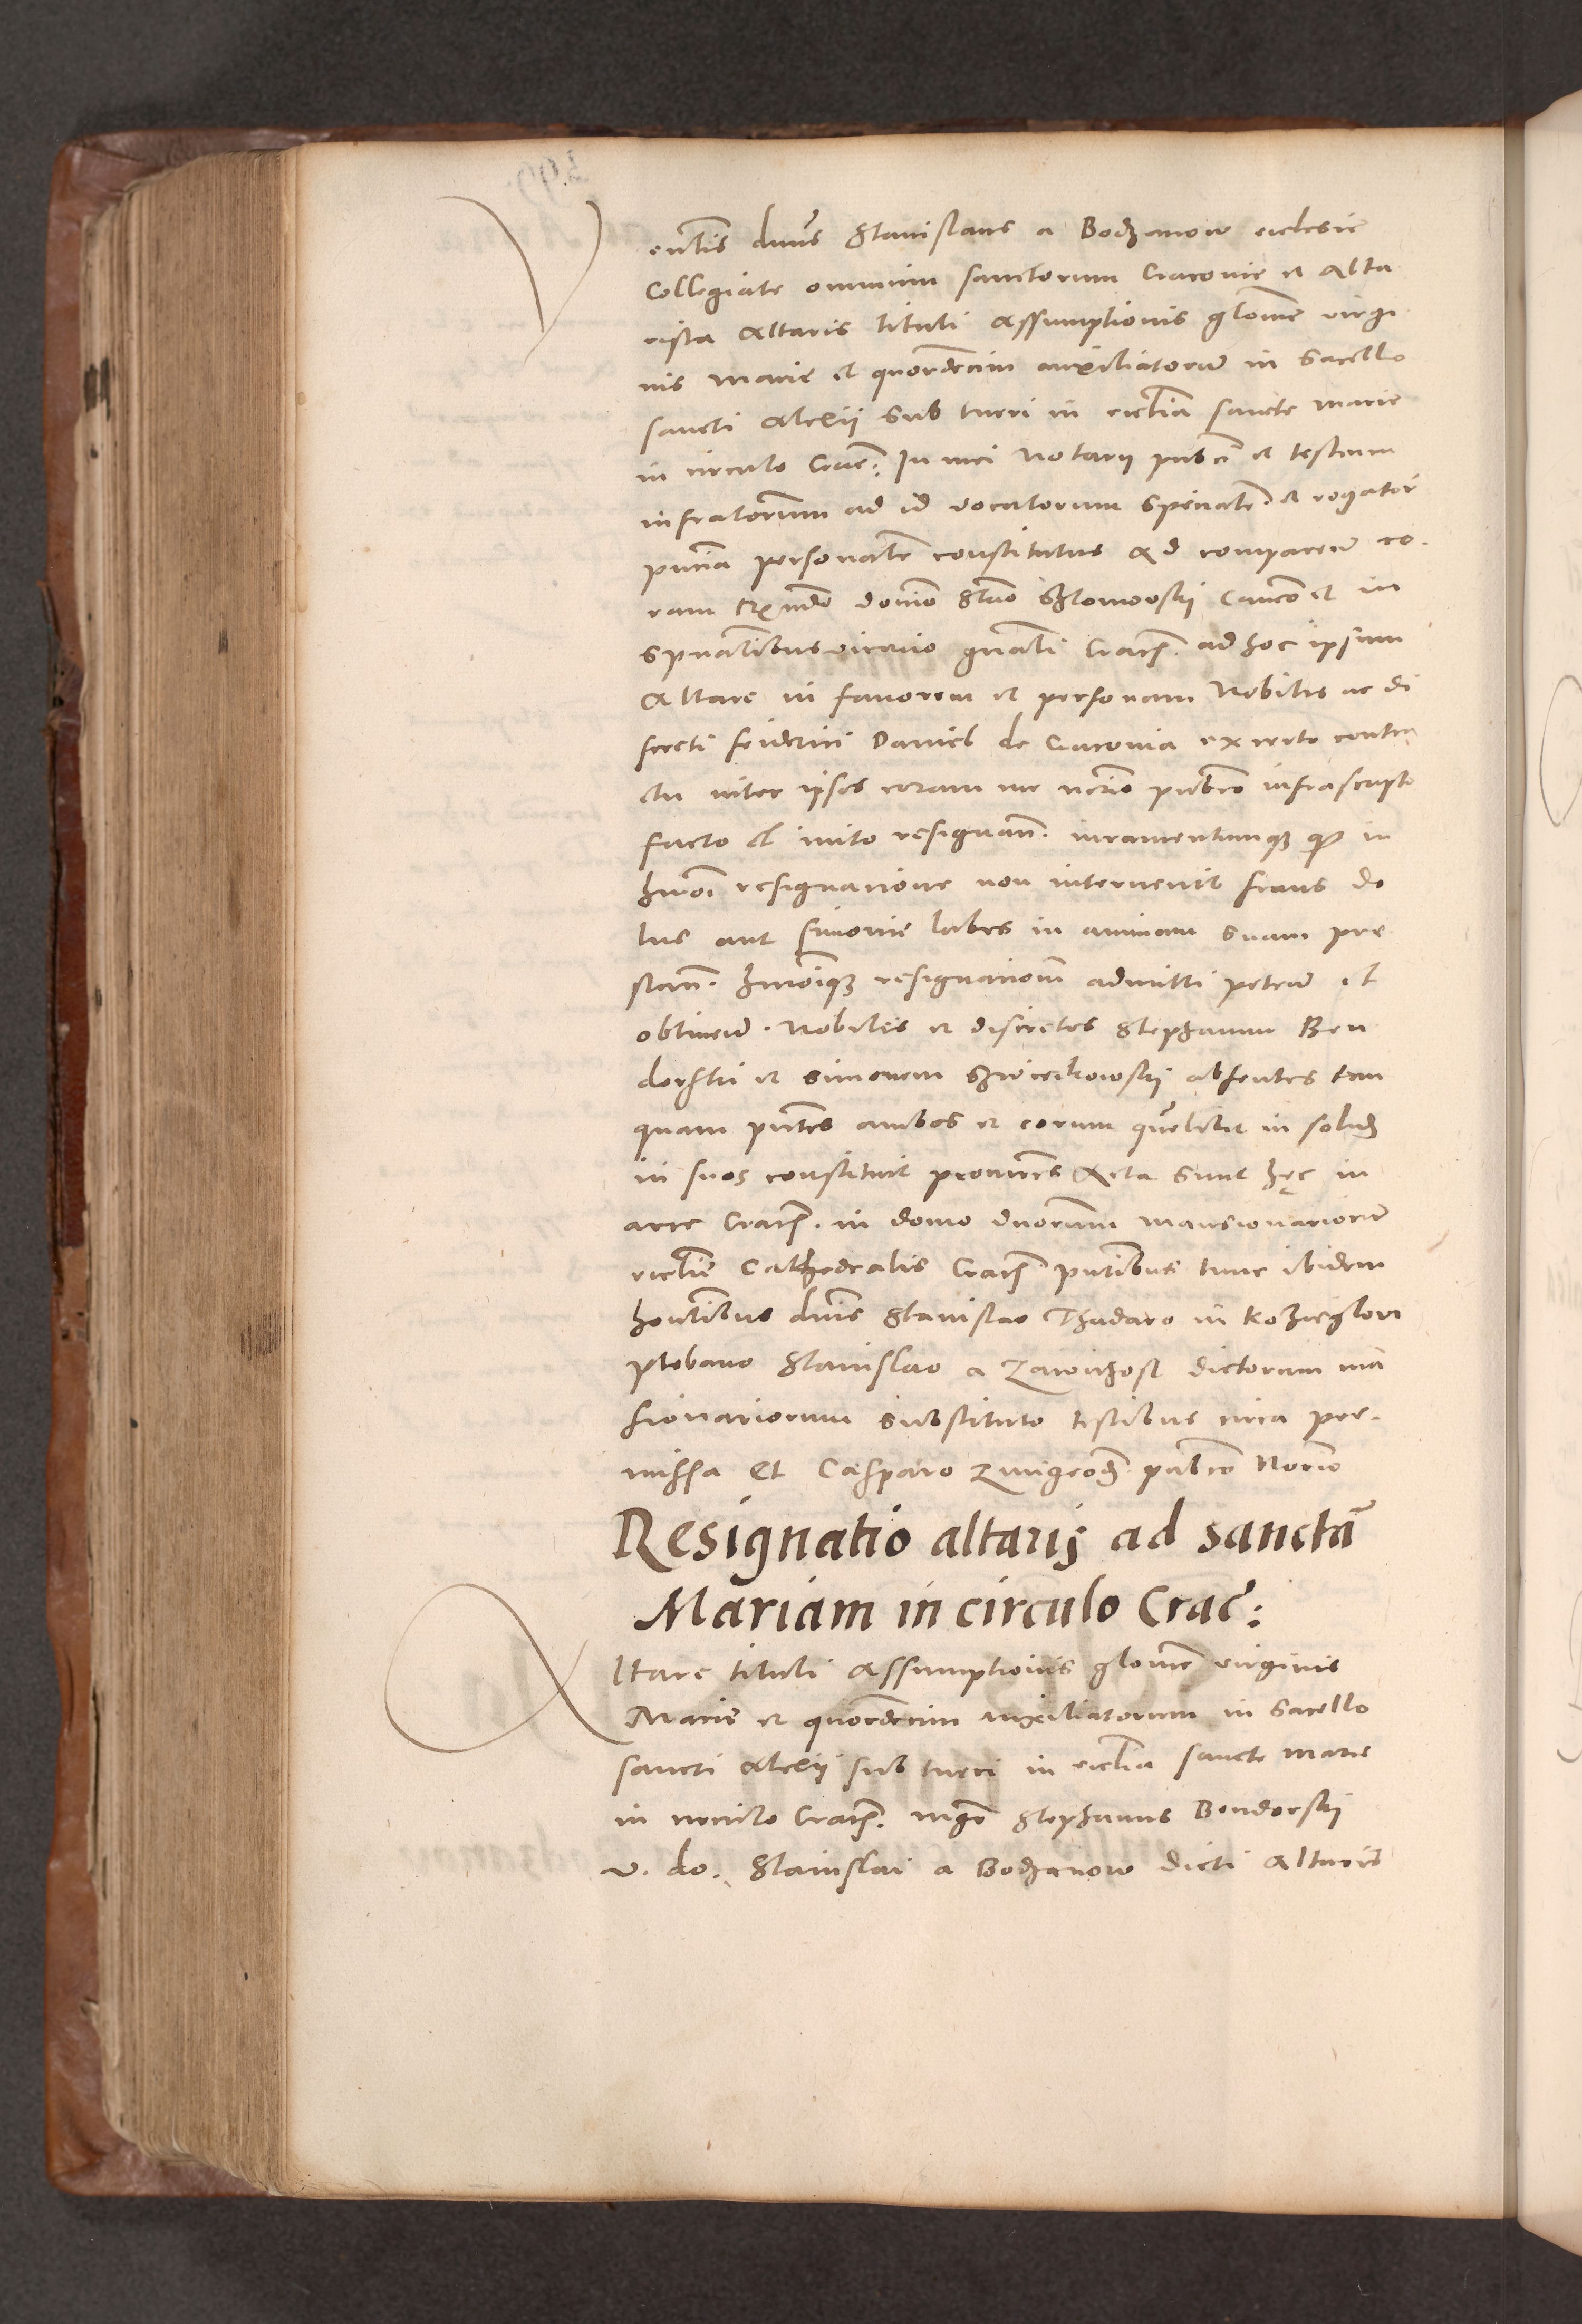 Venlis dnus Stanislaus a Bodzanow ecclesie
Collegiate omnium sanctorum Cracovie et Alta
rista Altaris tituli Assumptionis gloriose virgi
nis Marie et quordecim auxiliatorum in Sacello
sancti Alexii sub turri in ecclia sancte Marie
in circulo Crac: In mei Notarii publici et testium
infrascriptorum ad id vocatorum specialr et rogator
pntia personalr constitutus Ad comparend co-
ram Rndo domino Stano Szlomowskij Canco et in
spualibus vicario gnali Cracn. ad hoc ipsum
Altare in favorem et personam Nobilis ac di
screti friderici Daniel de Cracovia ex certo contra
ctu inter ipsos coram me notrio publico infrascripto
facto et inito resignand. iuramentumque quod in
hmoi resignacione non intervenit fraus do
lus aut simonie labes in animam suam pre
stand. hmoique resignacionem admitti petend et
obtinend. Nobiles et discretos Stephanum Ben
dorskii et Simonem Szwiecikowskij absentes tan
quam pntes ambos et eorum quelibet in solid
in suos constituit procures Acta sunt hęc in
arce Cracn. in domo dnorum mansionariorum
ecclie Cathedralis Cracn pntibus tunc ibidem
honlibus dnis Stanislao Thadaro in Kozieglovi
plebano Stanislao a Zawichost dictorum man
sionariorum substituto testibus circa pre-
missa Et Casparo publico Notrio
Resignatio altaris ad sanctā
Mariam in circulo Crac:
Altare tituli Assumptionis gloriose virginis
Marie et quordecim auxiliatorum in Sacello
sancti Alexii sub turri in ecclia sancte Marie
in circulo Cracn. Stephanus Bendorskij
v. do. Stanislai a Bodzanow dicti Altaris